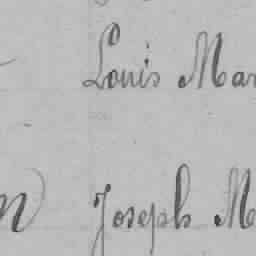 Louis Mar
n) Joseph M